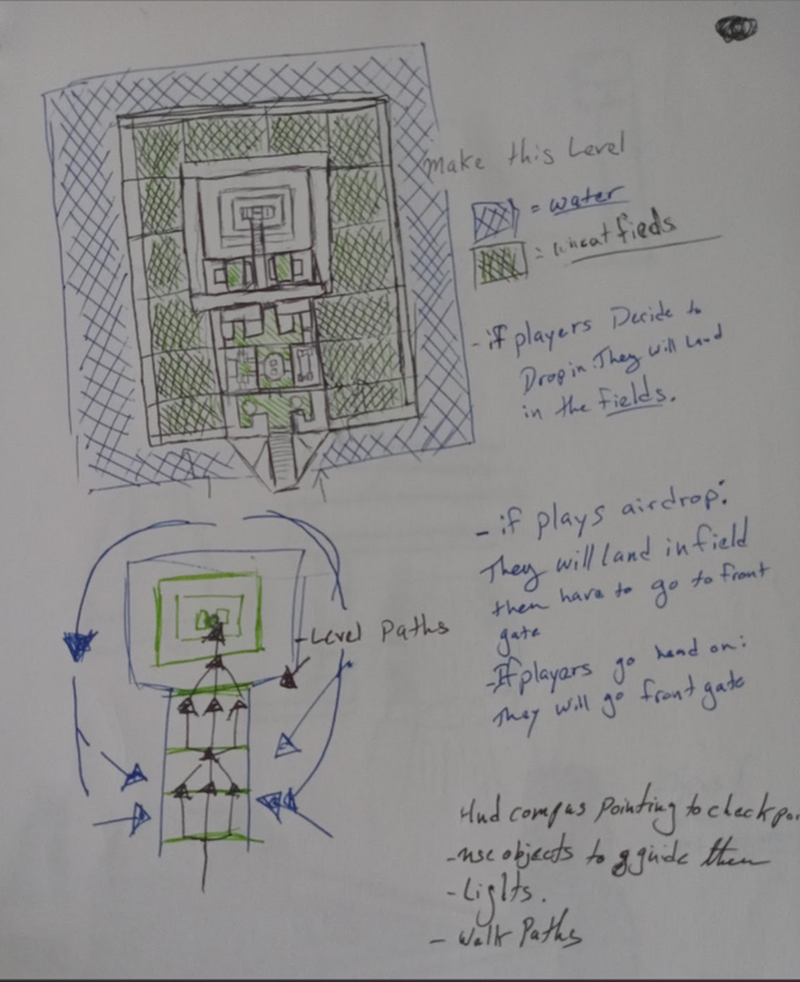 make this Level
= water
= wheat fieds
- if players Decide to
Drop in. They will Land
in the fields.
- if plays airdrop:
They will land in field
then have to go to front
gate
- If players go head on:
They will go front gate
- Level Paths
Hud compas Pointing to checkpo
- use objects to guide them
- Lights.
- Walk Paths